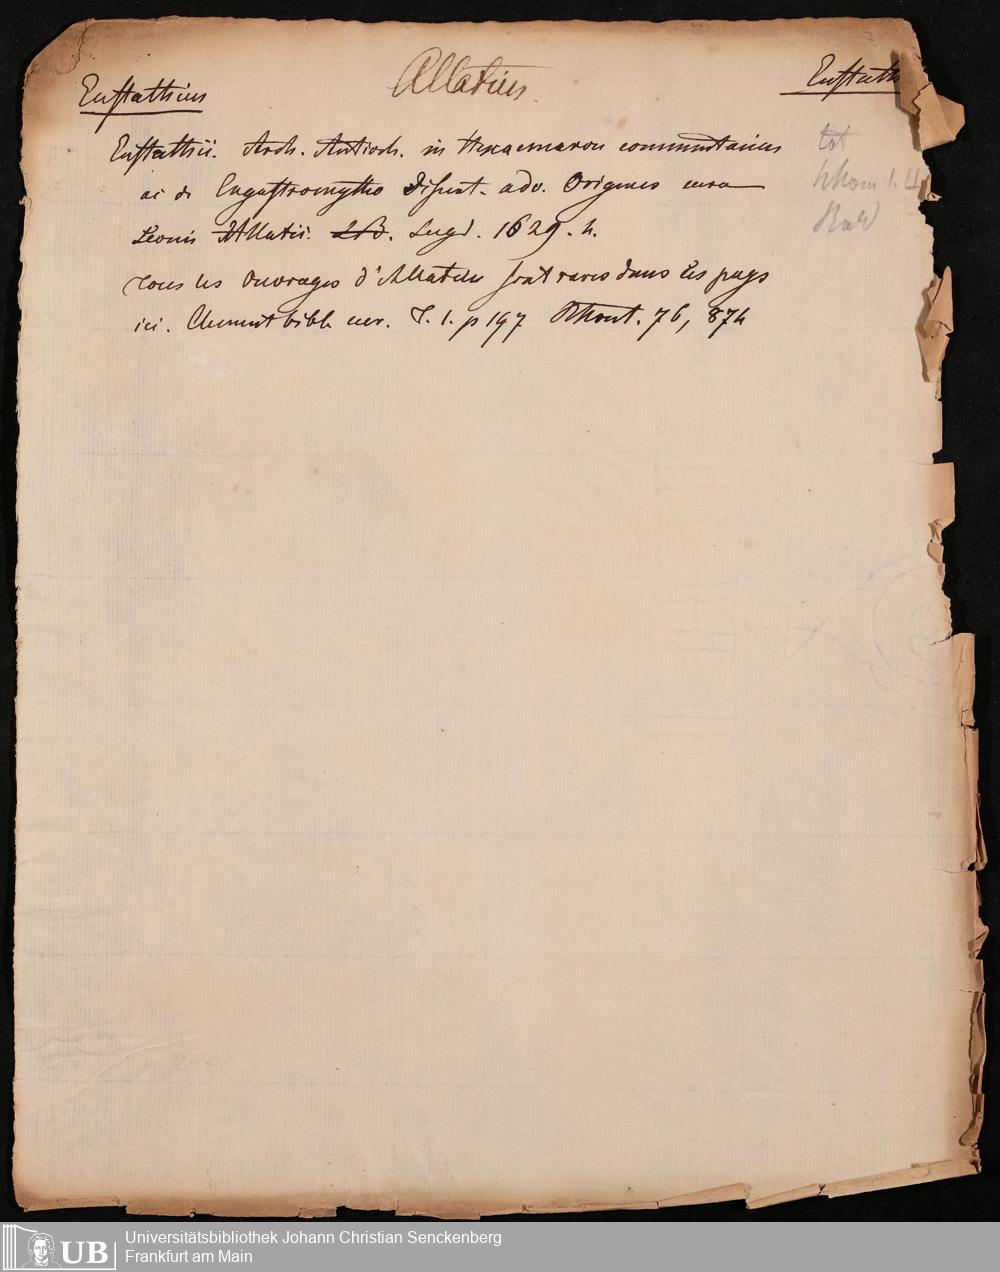 Eustathius Allatius. Eustath
Eustathii. Arch. Antioch. in Hexaemeron commentarius
ac de Engastromytho Dissert. adv. Origenes cura
Leonis Allatii. Lugd. 1629. 4.
tous les Ouvrages d'Allatius sont rares dans les pays
ici. Clement bibl. cur. T. 1. p 197 76, 874
tot
Universitätsbibliothek Johann Christian Senckenberg
Frankfurt am Main
UB